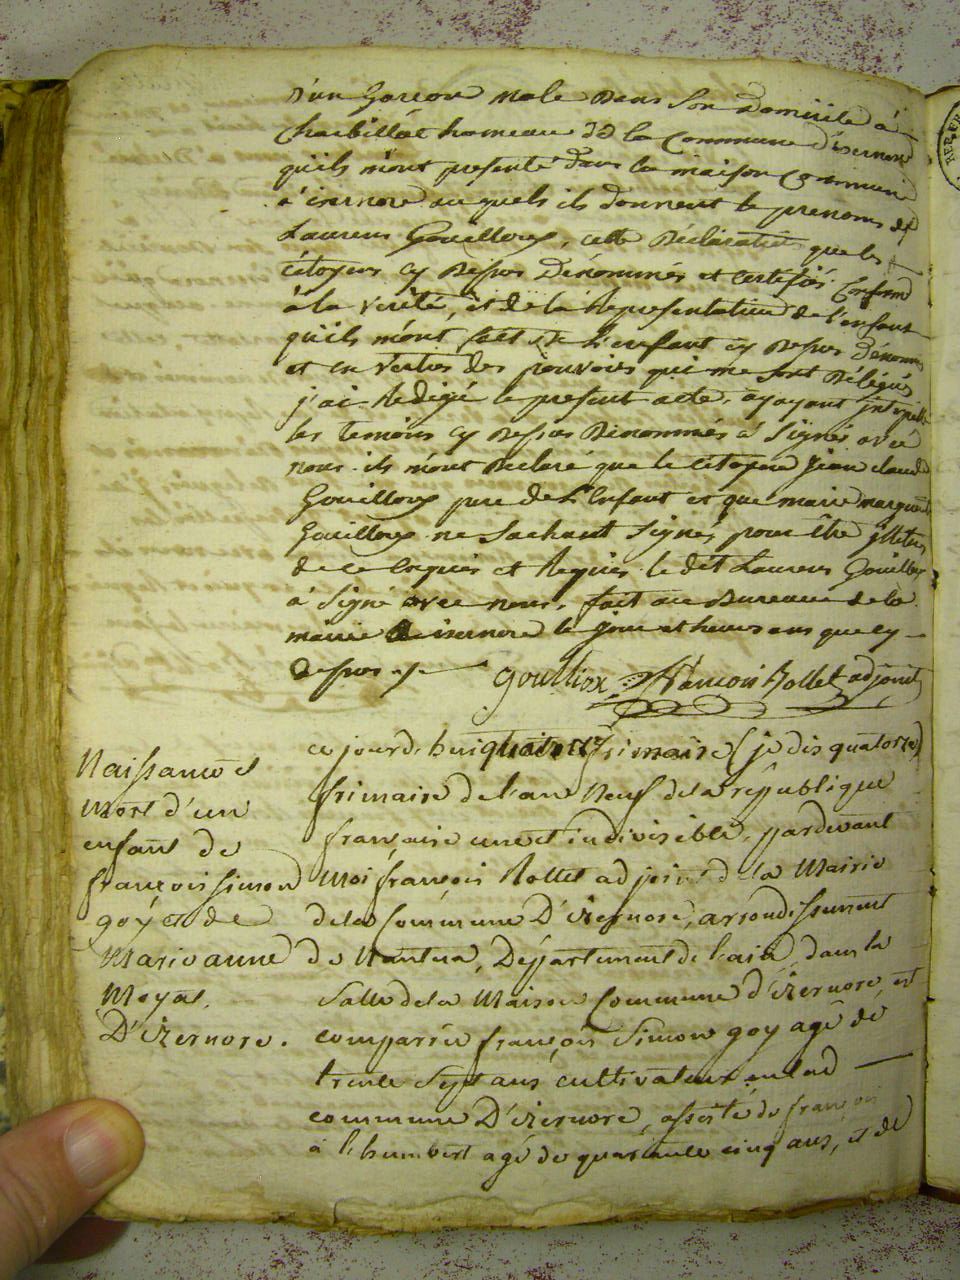 d'un Garcon male dans son domicile à
Charbillat hameau de la Commune d'isernore
qu'ils m'ont presenté dans la maison Commune
à isernore auquels ils donnent le prenoms de
Laurens Gouilloux, cette déclaration que les
citoyens cy dessus dénommés et certifiés Conform
à la verité, et de la Représentation de l'enfant
qu'ils m'ont fait de l'enfant cy dessus dénommé
et en vertus des pouvoirs qui me sont délégués
j'ai Redigé le present acte, ayayant interpellé
les temoins cy dessus dénommés à signés avec
nous ils m'ont declaré que le citoyen jean claude
Gouilloux pere de l'Enfant et que marie marguerite
Gouilloux ne sachant signés pour être illiteres
de ce Enquis et Requis le dit Laurens Gouilloux
à signé avec nous, fait au Bureau de la
mairie de isernore le jour et heures ans que cy
dessus
goullioux françois Rollet adjoint
Naissance et
mort d'un
enfant de
françois simon
goÿ et de
Marie anne
Moyat.
D'izernore.
ce jourd'hui quatorze frimaire (je dis quatorze)
frimaire de l'an Neuf de la république
française une et indivisible, pardevant
Moi françois Rollet adjoint de la Mairie
de la Commune D'izernore, arrondissement
de Nantua, Département de l'ain, dans la
salle de la Maison Commune d'izernore, est
comparru françois Simon goy agé de
trente sept ans cultivateur en lad
commune D'izernore, assisté de françois
à l'humbert agé de quarante cinq ans, et de